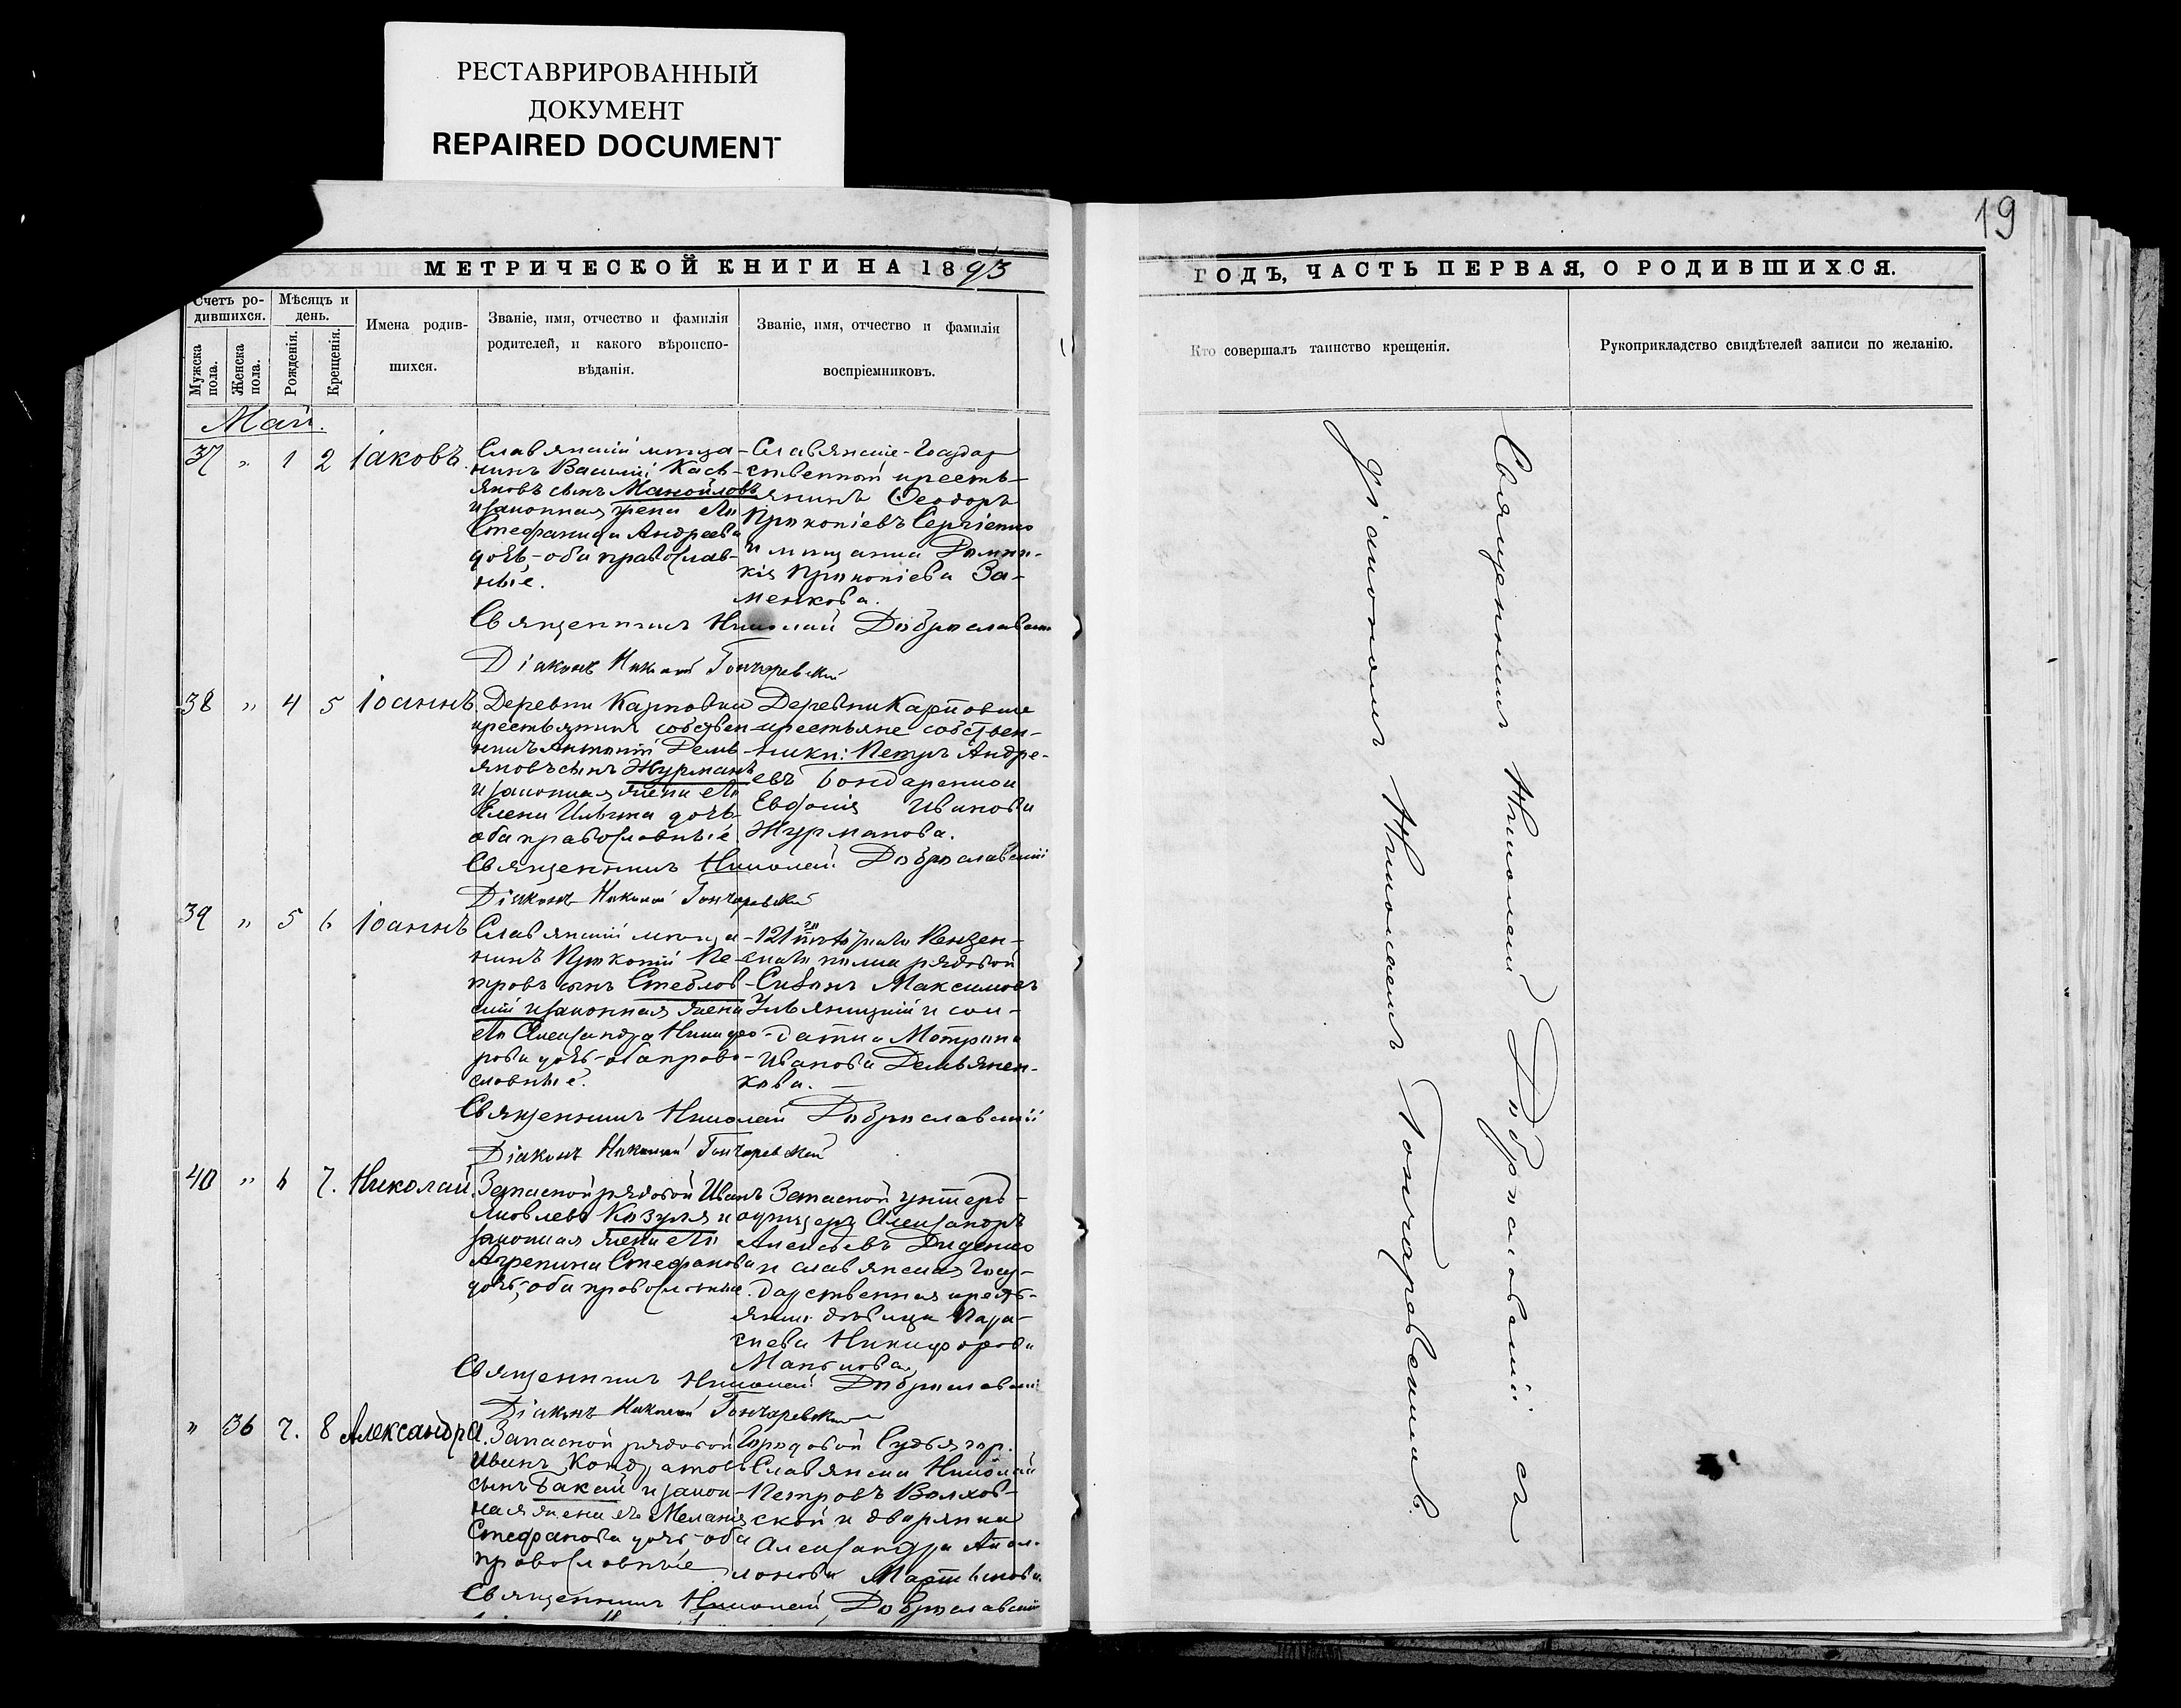 РЕСТАВРИРОВАННЫЙ
ДОКУМЕНТ
REPAIRED DOCUMENT
19
МЕТРИЧЕСКОЙ КНИГИ НА 1893
ГОДЪ, ЧАСТЬ ПЕРВАЯ, О РОДИВШИХСЯ.
Счетъ ро-
дившихся.
Мужска
пола.
Женска
пола.
Мѣсяцъ и
день.
Рожденія.
Крещенія.
Имена родив-
шихся.
Званіе, имя, отчество и фамилія
родителей, и какого вѣроиспо-
вѣданія.
Званіе, имя, отчество и фамилія
воспріемниковъ.
Кто совершалъ таинство крещенія.
Рукоприкладство свидѣтелей записи по желанію.
Май.
37 " 1 2 Іаковъ
Славянскій мѣща-
нинъ Василій Кась-
яновъ сынъ Манойловъ
и законная жена его
Стефанида Андреева
дочь, - оба православ-
ные.
Славянскіе - Государ
ственной кресть-
янинъ Ѳеодоръ
Прокопіевъ Сергіенко
и мѣщанка Домни-
кія Прокопіева За-
менкова.
Священникъ Николай Доброславскій
Діаконъ Николай Гончаревскій
38 " 4 5 Іоаннъ
Деревни Карповки
крестьянинъ собствен
никъ Антоній Демь-
яновъ сынъ Журманъ
и законная жена его
Елена Ильина дочь
оба православные
Деревни Карповки
крестьяне собствен-
ники: Петръ Андре-
евъ Бондаренко и
Евфонія Иванова
Журманова.
Священникъ Николай Доброславскій
Діаконъ Николай Гончаревскій
39 " 5 6 Іоаннъ
Славянскій мѣща-
нинъ Прокопій Пе-
тровъ сынъ Стеблов-
скій и законная жена
его Александра Никифо-
рова дочь - оба право-
славные.
121го пѣхотнаго Пензен-
скаго полка рядовой
Симонъ Максимовъ
Ульяницкій и сол-
датка Мотрона
Иванова Демьянен-
кова.
Священникъ Николай Доброславскій
Діаконъ Николай Гончаревскій
40 " 6 7. Николай
Запасной рядовой Иванъ
Яковлевъ Козуля и
законная жена его
Агрепина Стефанова
дочь, оба православные.
Запасной унтеръ-
офицеръ Александръ
Алексѣевъ Диденко
и славянская Госу-
дарственная кресть-
янка дѣвица Пара-
скева Никифорова
Священникъ Николай Доброславскій
Діаконъ Николай Гончаревскій
" 36 7. 8 Александра.
Запасной рядовой
Иванъ Кондратовъ
сынъ Бакай и закон-
ная жена его Меланія
Стефанова дочь - оба
православные
Городовой Судья гор.
Славянска Николай
Петровъ Волхов-
ской и дворянка
Александра Апол-
лонова Мартынова.
Священникъ Николай Доброславскій
Священникъ Николай Доброславскій съ
діакономъ Николаемъ Гончаревскимъ.